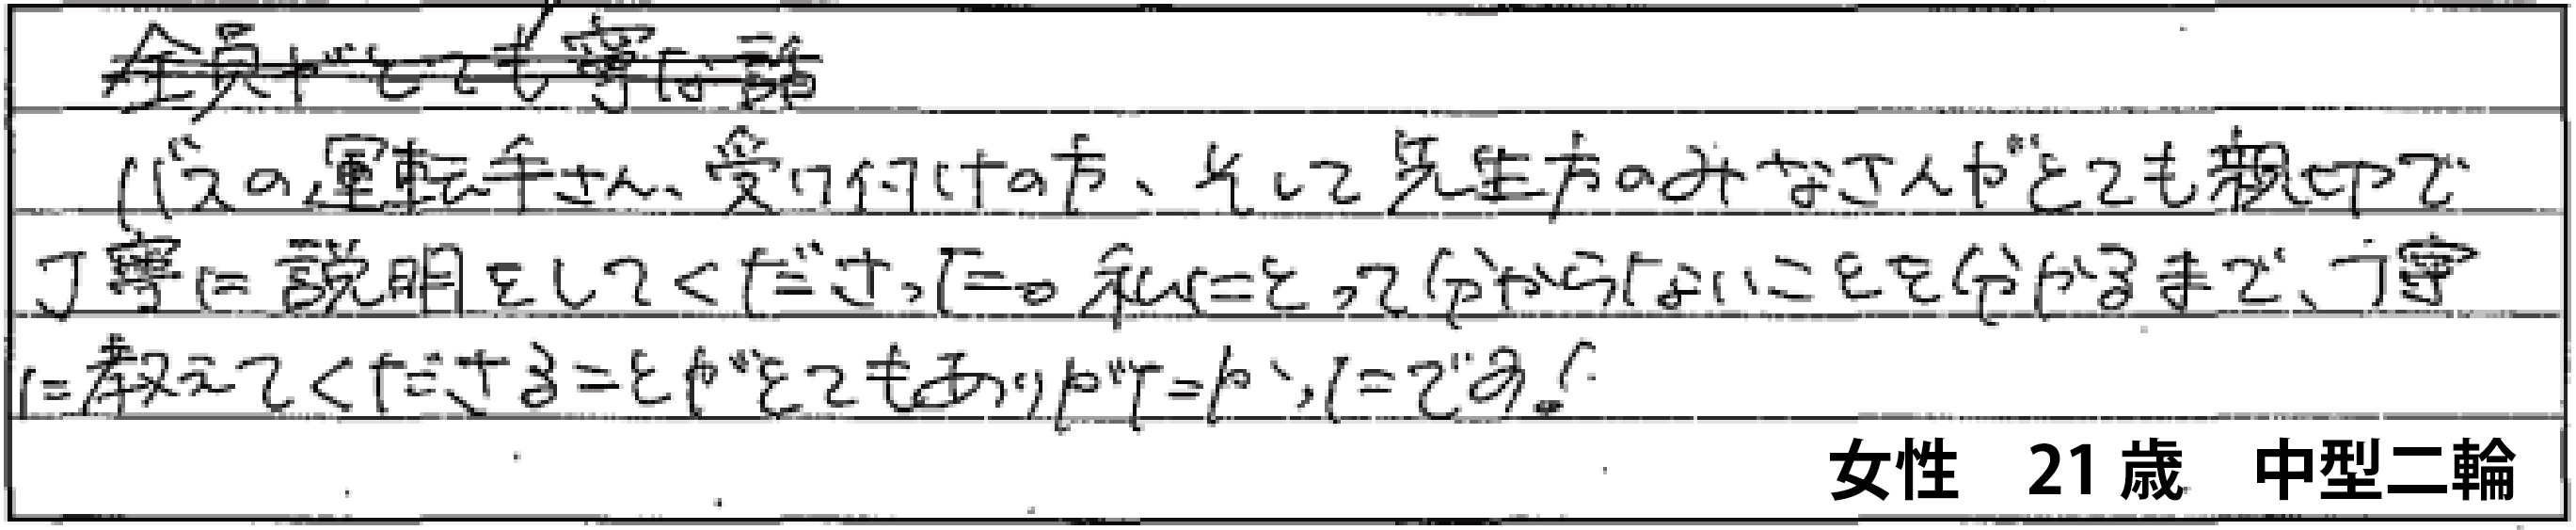 全員がとても寧な説
バスの運転手さん、受け付けの方、そして先生方のみなさんがとても親切で
丁寧に説明をしてくださった。私にとって分からないことを分かるまで、丁寧
に教えてくださることがとてもありがたかったです!
女性 21歳 中型二輪